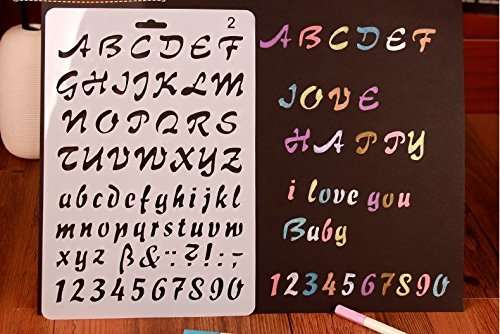 2
ABCDEF
GHIJKLM
NOPQRS
TUVWXYZ
abcdefghijkl
mnopqrstuvw
xyz ß&:;?!:-
1234567890
ABCDEF
LOVE
HAPPY
i love you
Baby
1234567890